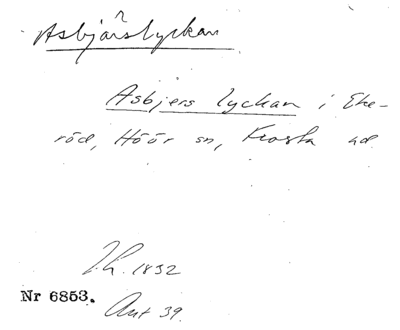 ?
Asbjärslyckan
Asbjers lyckan i Eke-
röd, Höör sn, Frosta hd
1832
Nr 6853.
Ant 39